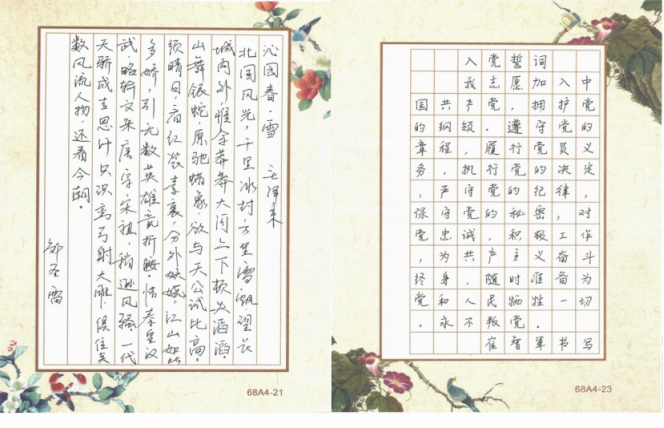 沁园春·雪 毛泽东
北国风光，千里冰封，万里雪飘。望长
城内外，惟余莽莽大河上下顿失滔滔。
山舞银蛇，原驰蜡象，欲与天公试比高。
须晴日，看红装素裹，分外妖娆。江山如此
多娇，引无数英雄竞折腰。惜秦皇汉
武，略输文采唐宗宋祖，稍逊风骚。一代
天骄成吉思汗只识弯弓射大雕。俱往矣
数风流人物，还看今朝。
雷
68A4-21
入党誓词
我志愿加入中
国共产党，拥护党
的纲领，遵守党的
章程，履行党员义
务，执行党的决定
，严守党的纪律，
保守党的秘密，对
党忠诚，积极工作
，为共产主义奋斗
终身，随时准备为
党和人民牺牲一切
，永不叛党。
崔智军书写
68A4-23